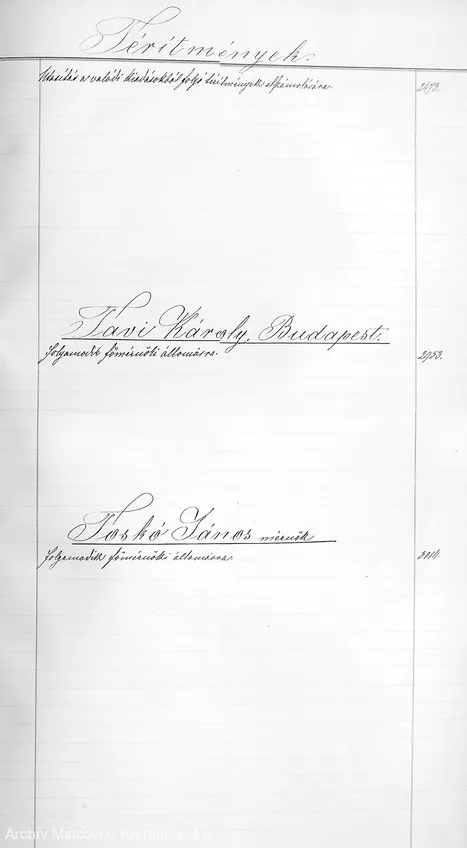 Térítmények.
Utasítás a valódi kiadásokból folyó térítmények elszámolására. 2673.
Tavi Károly, Budapest.
folyamodik főmérnöki állomásra. 2953.
Toskó János mérnök
folyamodik főmérnöki állomásra. 3014.
Archív Mincovne Kremnica